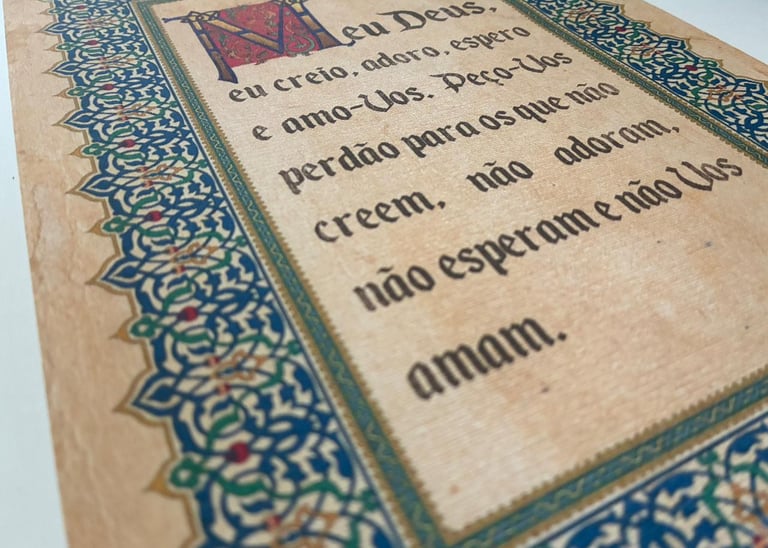 Meu Deus,
eu creio, adoro, espero
e amo-Vos. Peço-Vos
perdão para os que não
creem, não adoram,
não esperam e não Vos
amam.